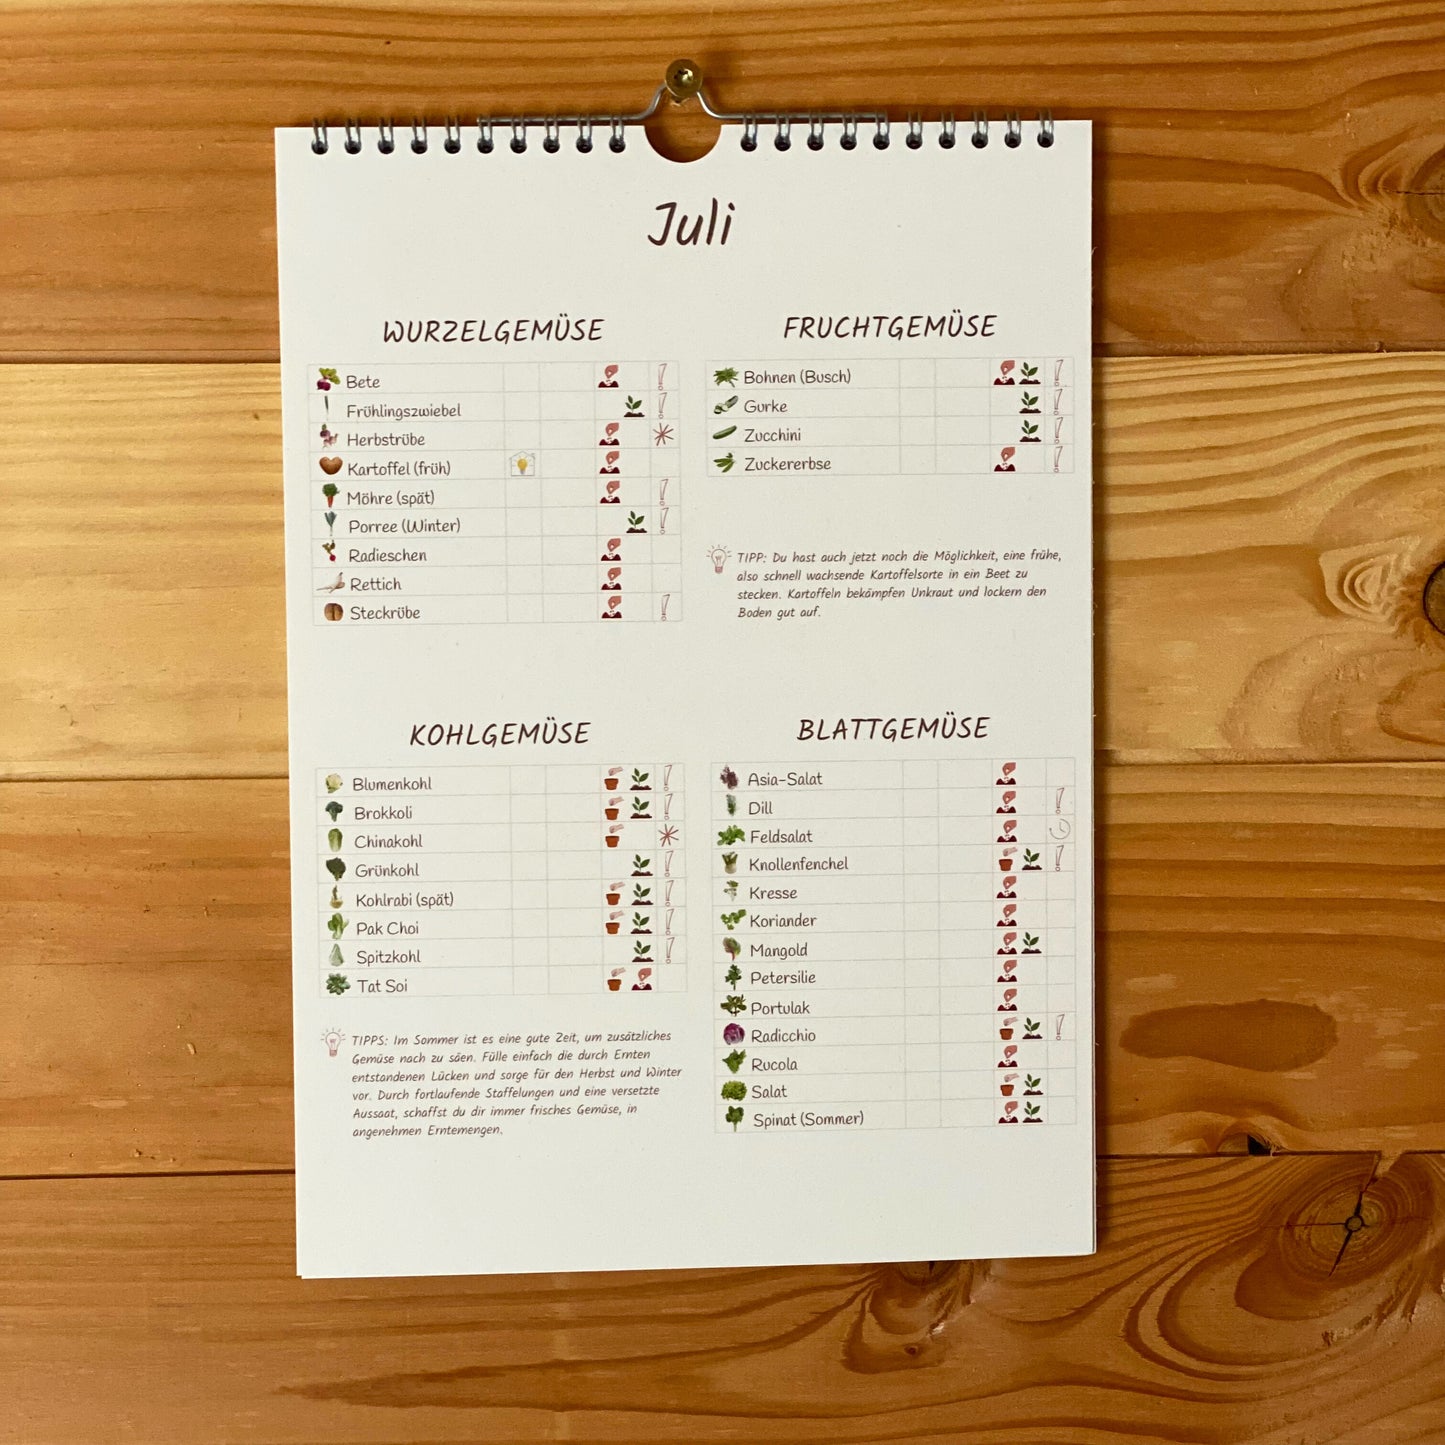 Juli
WURZELGEMÜSE
Bete
Frühlingszwiebel
Herbstrübe
Kartoffel (früh)
Möhre (spät)
Porree (Winter)
Radieschen
Rettich
Steckrübe
FRUCHTGEMÜSE
Bohnen (Busch)
Gurke
Zucchini
Zuckererbse
TIPP: Du hast auch jetzt noch die Möglichkeit, eine frühe,
also schnell wachsende Kartoffelsorte in ein Beet zu
stecken. Kartoffeln bekämpfen Unkraut und lockern den
Boden gut auf.
KOHLGEMÜSE
Blumenkohl
Brokkoli
Chinakohl
Grünkohl
Kohlrabi (spät)
Pak Choi
Spitzkohl
Tat Soi
TIPPS: Im Sommer ist es eine gute Zeit, um zusätzliches
Gemüse nach zu säen. Fülle einfach die durch Ernten
entstandenen Lücken und sorge für den Herbst und Winter
vor. Durch fortlaufende Staffelungen und eine versetzte
Aussaat, schaffst du dir immer frisches Gemüse, in
angenehmen Erntemengen.
BLATTGEMÜSE
Asia-Salat
Dill
Feldsalat
Knollenfenchel
Kresse
Koriander
Mangold
Petersilie
Portulak
Radicchio
Rucola
Salat
Spinat (Sommer)